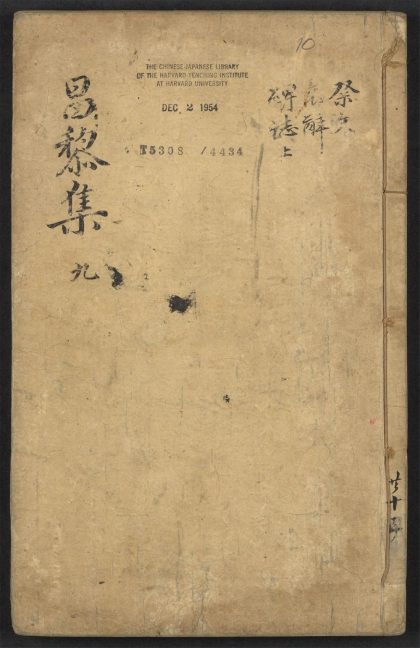 10
祭文
哀辭
碑誌上
THE CHINESE-JAPANESE LIBRARY
OF THE HARVARD-YENCHING INSTITUTE
AT HARVARD UNIVERSITY
DEC 2 1954
T5308 /4434
昌黎集
九
共十